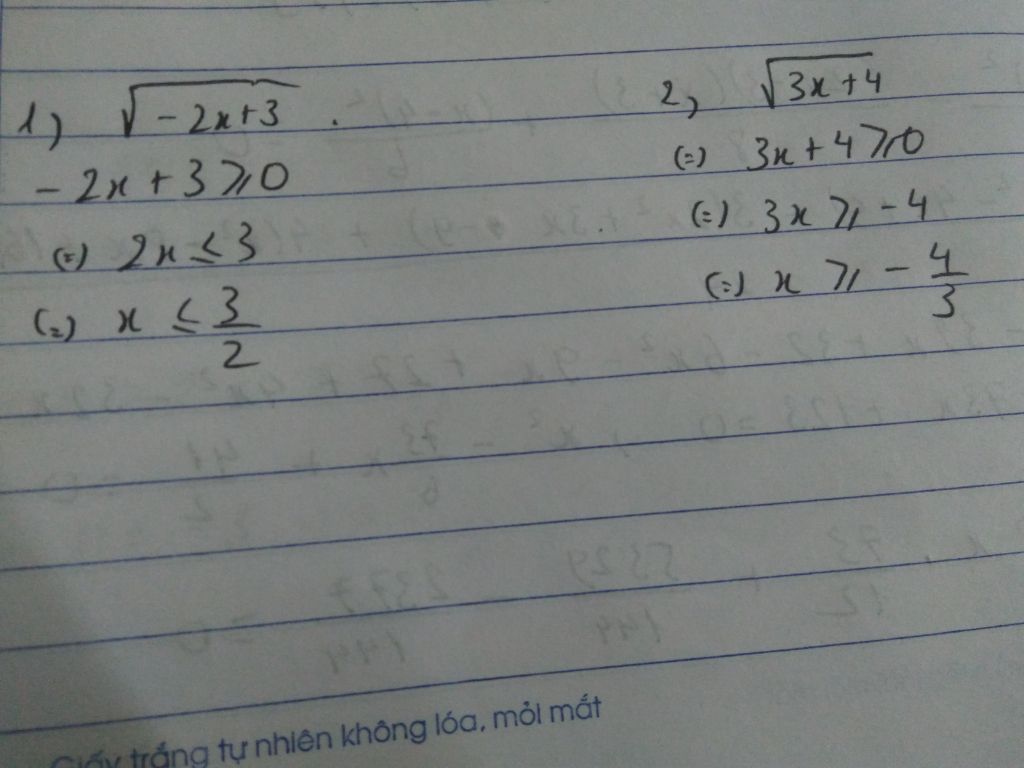 1) √(-2x+3) .
-2x+3 ≥ 0
(=) 2x ≤ 3
(=) x ≤ 3/2
2) √(3x+4)
(=) 3x+4 ≥ 0
(=) 3x ≥ -4
(=) x ≥ -4/3
Giấy trắng tự nhiên không lóa, mỏi mắt